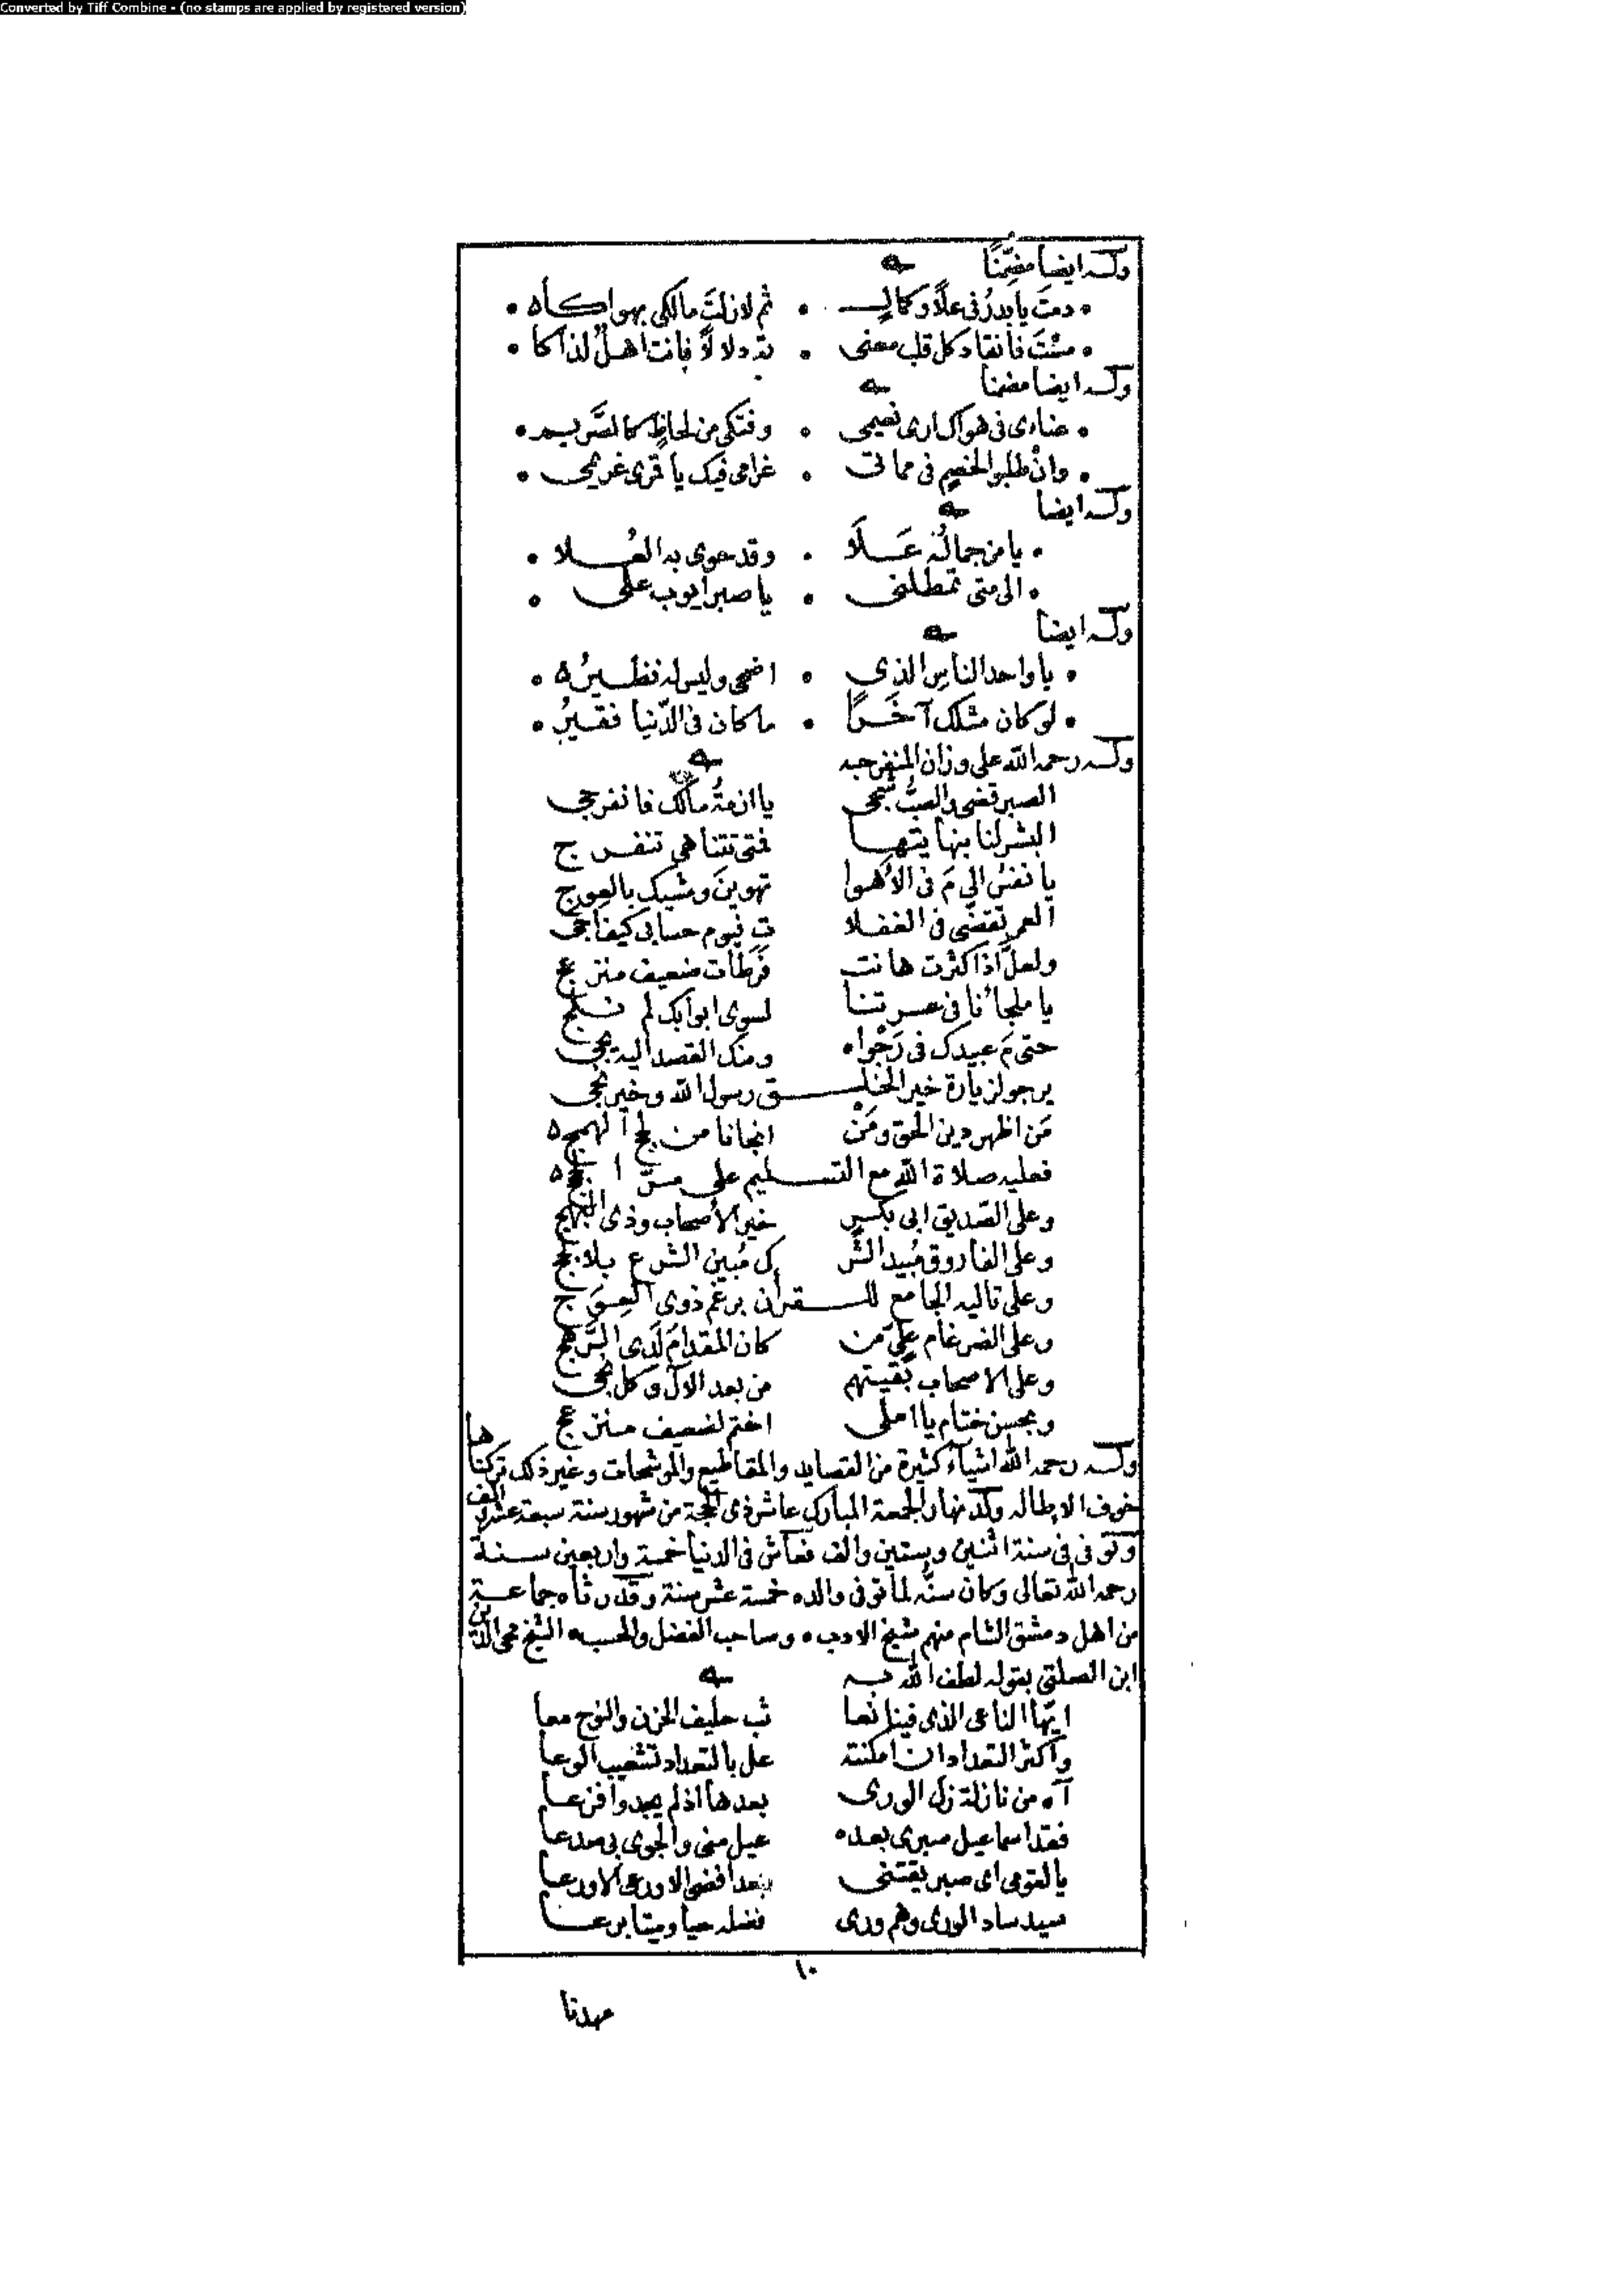 Converted by Tiff Combine - (no stamps are applied by registered version)
وله ايضا مضمّنًا
دمتَ يا بدرُ في علًا وكمالٍ • ثم لازلتَ مالكي بهواكاه
مِسْتَ فانقاد كل قلب معنى • ته دلالاً فانت اهلٌ لذاكا
وله ايضا مضمنا
عنادى فى هواك ارى نعيمى • وفتكى من لحاظٍ كالصَّريم
وانْ طلبوا الخصيم فى مماتى • غرامى فيك يا قمرى غريمى
وله ايضا
يا من جمالُهُ عَلَا • وقد حوى به العُلا
الى متى تمطلنى • يا صبر ايوب على
وله ايضا
يا واحد الناسِ الذى • اضحى وليس له نظيرُه
لو كان مثلك آخَرًا • ما كان فى الدّنيا فقيرُ
وله رحمه الله على وزان المنفرجه
الصبر قضى والصبُّ شجى يا ازمةُ مالك فانفرجى
البشر لنا بنهايتها فمتى تتناهى تنفرج
يا نفسُ الى مَ فى الاَهوا تهوينَ ومشيك بالعِوج
العمر تقضّى فى الغفلا تِ فيوم حسابى كيف اجى
ولعلَّ اذا كثرت هانت فَرَطات ضعيف منزعج
يا ملجائنا فى عسرتنا لسوى ابوابك لم نلج
حتى مَ عبيدك فى رَجْواه ومنك القصد اليه يجى
يرجو لزيارة خير الخلق رسول الله وخير نجى
مَن اظهر دين الحق ومَنْ انجانا من لجج الهمج
فعليه صلاة الله مع التسليم على مرّ
وعلى الصّديق ابى بكرٍ خير الأصحاب وذى النهج
وعلى الفاروق مُبيد الشّر ك مُبين الشرع بلا
وعلى تاليه الجامع للقرأن برغم ذوى العِوَج
وعلى الضرغام علِىّ من كان المقدامَ لَدى الرَّهج
وعلى الاصحاب بَقيتهم من بعد الآل وكل نجى
وبحسن ختام يا املى اختم لضعيف منزعج
وله رحمه الله اشياء كثيرة من القصايد والمقاطيع والموشحات وغير ذلك تركناها
خوف الاطاله ولد نهار الجمعة المبارك عاشر ذى الحجة من شهور سنة سبعة عشر والف
وتوفى فى سنة اثنين وستين والف فعاش فى الدنيا خمسة واربعين سنة
رحمه الله تعالى وكان سنّه لما توفى والده خمسة عشر سنة وقد رثاه جماعة
من اهل دمشق الشام منهم شيخ الادب • وصاحب الفضل والحسب • الشيخ محى الدين
ابن الصلتى بقوله لطف الله به
ايّها الناعى الذى فينا نعا ثب حليف الحزن والنوح معا
واكثر التعداد ان امكنته عل بالتعداد تشعيب الوعا
آه من نازلة زل الورى بعدها اذ لم يجدوا فزعا
فقد اسماعيل صبرى بعده عيل منى والجوى بى صدعا
يا لقومى اى صبر يقتنى بعد افضى الاورعى الاورعا
سيد ساد الورى وهم ورى فضله حيا وميتا برعا
١٠
عهدنا